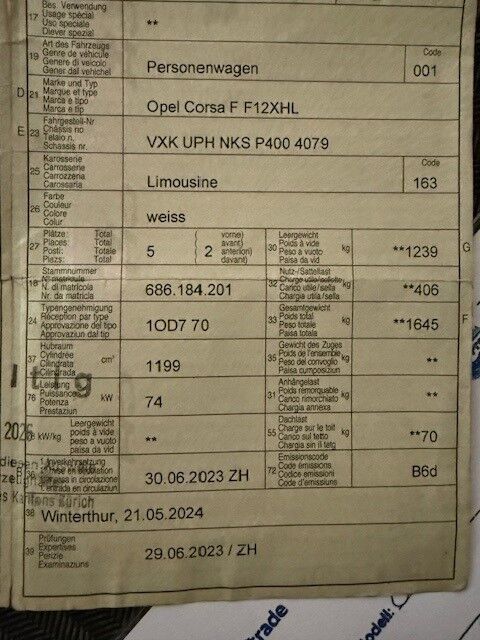 Bes. Verwendung
17 Usage spécial
Uso speciale
Diever spezial
**
Art des Fahrzeugs
19 Genre de véhicule
Genere di veicolo
Gener dal vehichel
Personenwagen
Code
001
Marke und Typ
D 21 Marque et type
Marca e tipo
Marca e tip
Opel Corsa F F12XHL
Fahrgestell-Nr
E 23 Châssis no
Telaio n.
Schassis nr.
VXK UPH NKS P400 4079
Karosserie
25 Carrosserie
Carrozzeria
Carossaria
Limousine
Code
163
Farbe
26 Couleur
Colore
Colur
weiss
Plätze: Total
27 Places: Total
Posti: Totale
Plazs: Total
5
( vorne)
avant)
anteriori)
davant)
2
Leergewicht
30 Poids à vide kg
Peso a vuoto
Paisa da vid
**1239
G
Stammnummer
18 N° matricule
N. di matricola
Nr. da matricla
686.184.201
Nutz-/Sattellast
32 Charge utile/sellette kg
Carico utile/sella
Chargia utila/sella
**406
Typengenehmigung
24 Réception par type
Approvazione del tipo
Approvaziun dal tip
1OD7 70
Gesamtgewicht
33 Poids total kg
Peso totale
Paisa totala
**1645
F
Hubraum
37 Cylindrée cm³
Cilindrata
Cilindrada
1199
Gewicht des Zuges
35 Poids de l'ensemble kg
Peso del convoglio
Paisa cumposiziun
**
Leistung
76 Puissance kW
Potenza
Prestaziun
74
Anhängelast
31 Poids remorquable kg
Carico rimorchiato
Chargia annexa
**
Leergewicht
kW/kg poids à vide
peso a vuoto
paisa da vid
**
Dachlast
55 Charge sur le toit kg
Carico sul tetto
Chargia sin il tetg
**70
1. Inverkehrsetzung
30.06.2023 ZH
Emissionscode
72 Code émissions
Codice emissioni
Code d'emissiuns
B6d
38 Winterthur, 21.05.2024
Prüfungen
39 Expertises
Perizie
Examinaziuns
29.06.2023 / ZH
Kantons Zürich
trade